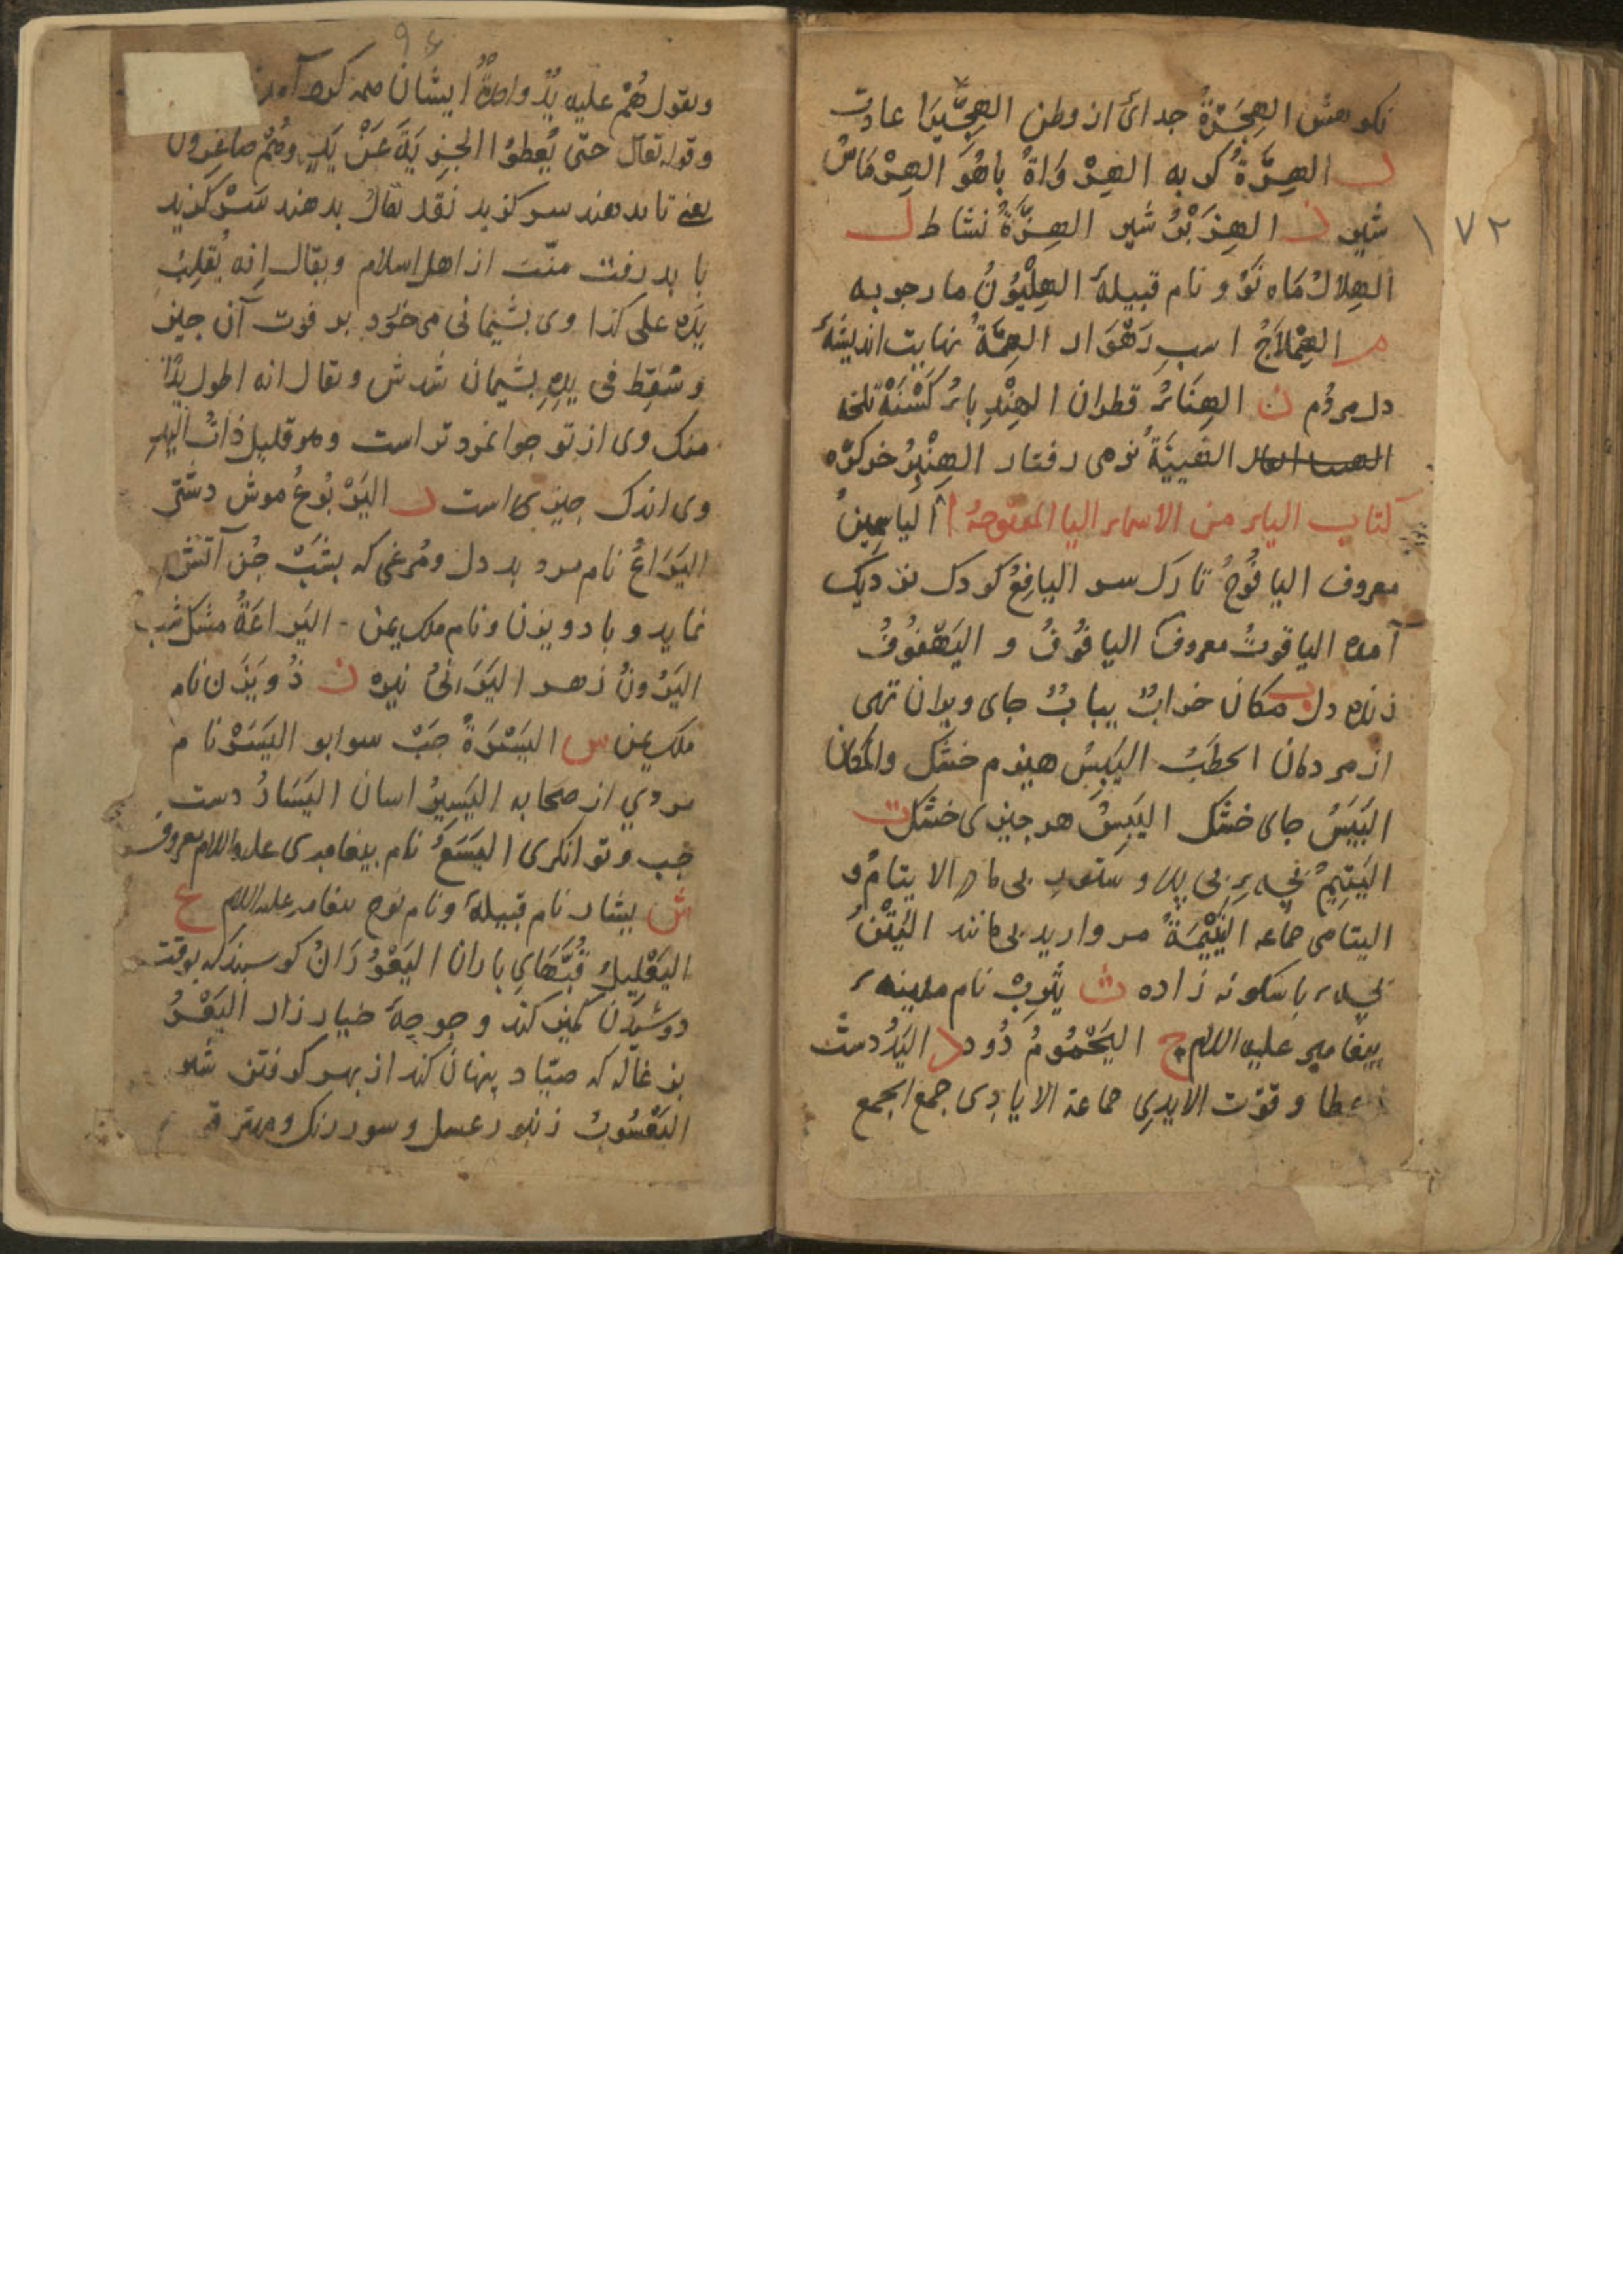 نکوهش الهِجْرَةُ جدائ از وطن الهِجِّيرَا عادت
ر الهِرَّةُ کربه الهِرْوَاةُ باهُو الهِرْمَاسُ
شیر ز الهِزَبْرُ شیر الهِزَّةُ نشاط ل
۱۷۲
الهِلَالُ مَاه نَوْ و نام قبیلهٔ الهِلْيَوْنُ مارجوبه
م الهِمْلَاجُ اسبِ رَهْوَار الهِمَّةُ نهایت اندیشهٔ
دل مردُم ن الهِنَاءُ قطران الهِنْدِبَاءُ کَسْنَهٔ تلخه
الهَيْنَةُ نرمی رفتار الهِنْبِرُ خرکرّه
کتاب الیاء من الاسماء الیا المفتوحهُ ا الیاسِمِینُ
معروف الیافُوخُ تارک سر الیافِعُ کودک نزدیک
آمده الیاقوتُ معروف الیافُوفُ و الیَهْفُوفُ
زنده دل ب مکان خرابٌ یبابٌ جای ویران تهی
از مردمان الحطَبُ الیَبِسُ هیزم خشک والمکان
الیَبَسُ جای خشک الیَبِسُ هر چیزی خشک ت
الیَتِیمُ بی پدر و ستورِ بی مادر الایتامُ و
الیتامی جماعه الیَتِیْمَةُ مروارید بی مانند الیَتْنُ
بچه با سکونه زاده ث یثرِبُ نام مدینه
پیغامبر علیه السلام ح الیَحْمُومُ دُود د الیَدُ دست
عطا و قوّت الایدِی جماعة الایادِی جمع الجمع
۹۶
ویقول هُمْ علیه یدٌ واحدةٌ ایشان همه کرد آمدند
و قوله تعالی حتّی یُعطُوا الجِزیَةَ عَنْ یَدٍ وهُمْ صاغِرون
یعنی تا بدهند سر کزید نقد یقال بدهند سَرْ کزید
با پدرفت منّت از اهل اسلام ویقال اِنه یُقلِبُ
یَدَه علی کذا وی بشیمانی می خوَرد بر فوت آن چیز
وسُقِط فی یدِهِ بشیمان شدش ویقال انه اطول یدًا
منک وی از تو جوانمرد تر است وهو قلیل ذات الید
وی اندک چیزی است ر الیَرْبُوعُ موش دشتی
الیَرَاعُ نام مرد بد دل و مُرغی که بشَبْ چُن آتش
نماید و باد و یزن و نام ملک یمن الیَراعَةُ مشک شب
الیَرُونُ زهر الیَزَانیُّ نیزه ز ذُو یَزَن نام
ملک یمن س الیَسْرَةُ چَبْ سو ابو الیَسَرْ نام
مردي از صحابه الیَسِیرُ اسان الیَسَارُ دست
چپ و توانکری الیَسَعُ نام بیغامبری علیه السلام معروف
ش یشار نام قبیلهٔ و نام نوح بیغامبر علیه السلام ع
الیَعْلِیلُ قُبَّهَاي باران الیَعْوُرَانُ کوسبند که بوقت
دوشیدَن کمیز کند و جوجهٔ خیار زار الیَعْرُ
بزغاله که صیّاد پنهان کند از بهر کرفتن شیر
الیَعْسُوبُ زنبور عسل و سوررنک و مهتر